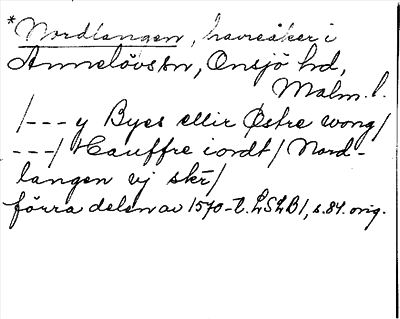 *Nordlangen, havreåker i
Annelövs sn, Onsjö hd,
Malm. l.
/--- y Byes ellir Østre wong/
---/ Hauffre iordt/ Nord-
langen vj skr/
förra delen av 1570-t. LSLB1, s. 84. orig.